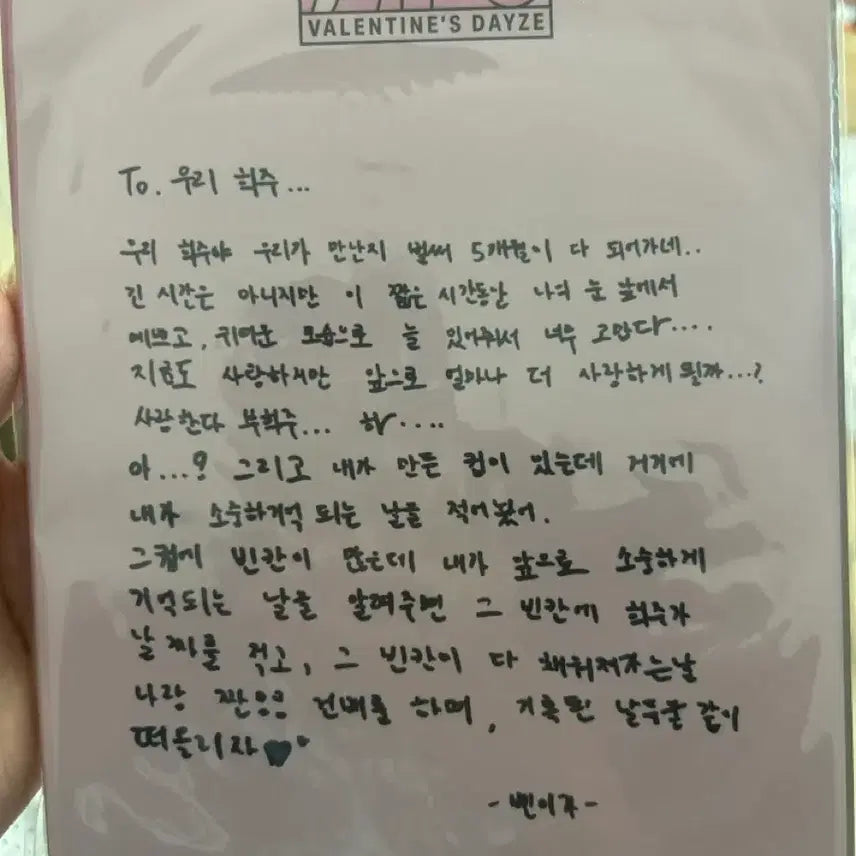 VALENTINE'S DAYZE
To. 우리 희주...
우리 희주야 우리가 만난지 벌써 5개월이 다 되어가네..
긴 시간은 아니지만 이 짧은 시간동안 나의 눈 앞에서
예쁘고, 귀여운 모습으로 늘 있어줘서 너무 고맙다....
지금도 사랑하지만 앞으로 얼마나 더 사랑하게 될까...?
사랑한다 부희주... 하....
아...? 그리고 내가 만든 컵이 있는데 거기에
내가 소중하게 기억 되는 날을 적어놨어.
그컵에 빈칸이 많은데 내가 앞으로 소중하게
기억되는 날을 알려주면 그 빈칸에 희주가
날짜를 적고, 그 빈칸이 다 채워져가는날
나랑 짠 건배를 하며, 기록된 날들을 같이
떠올리자♥